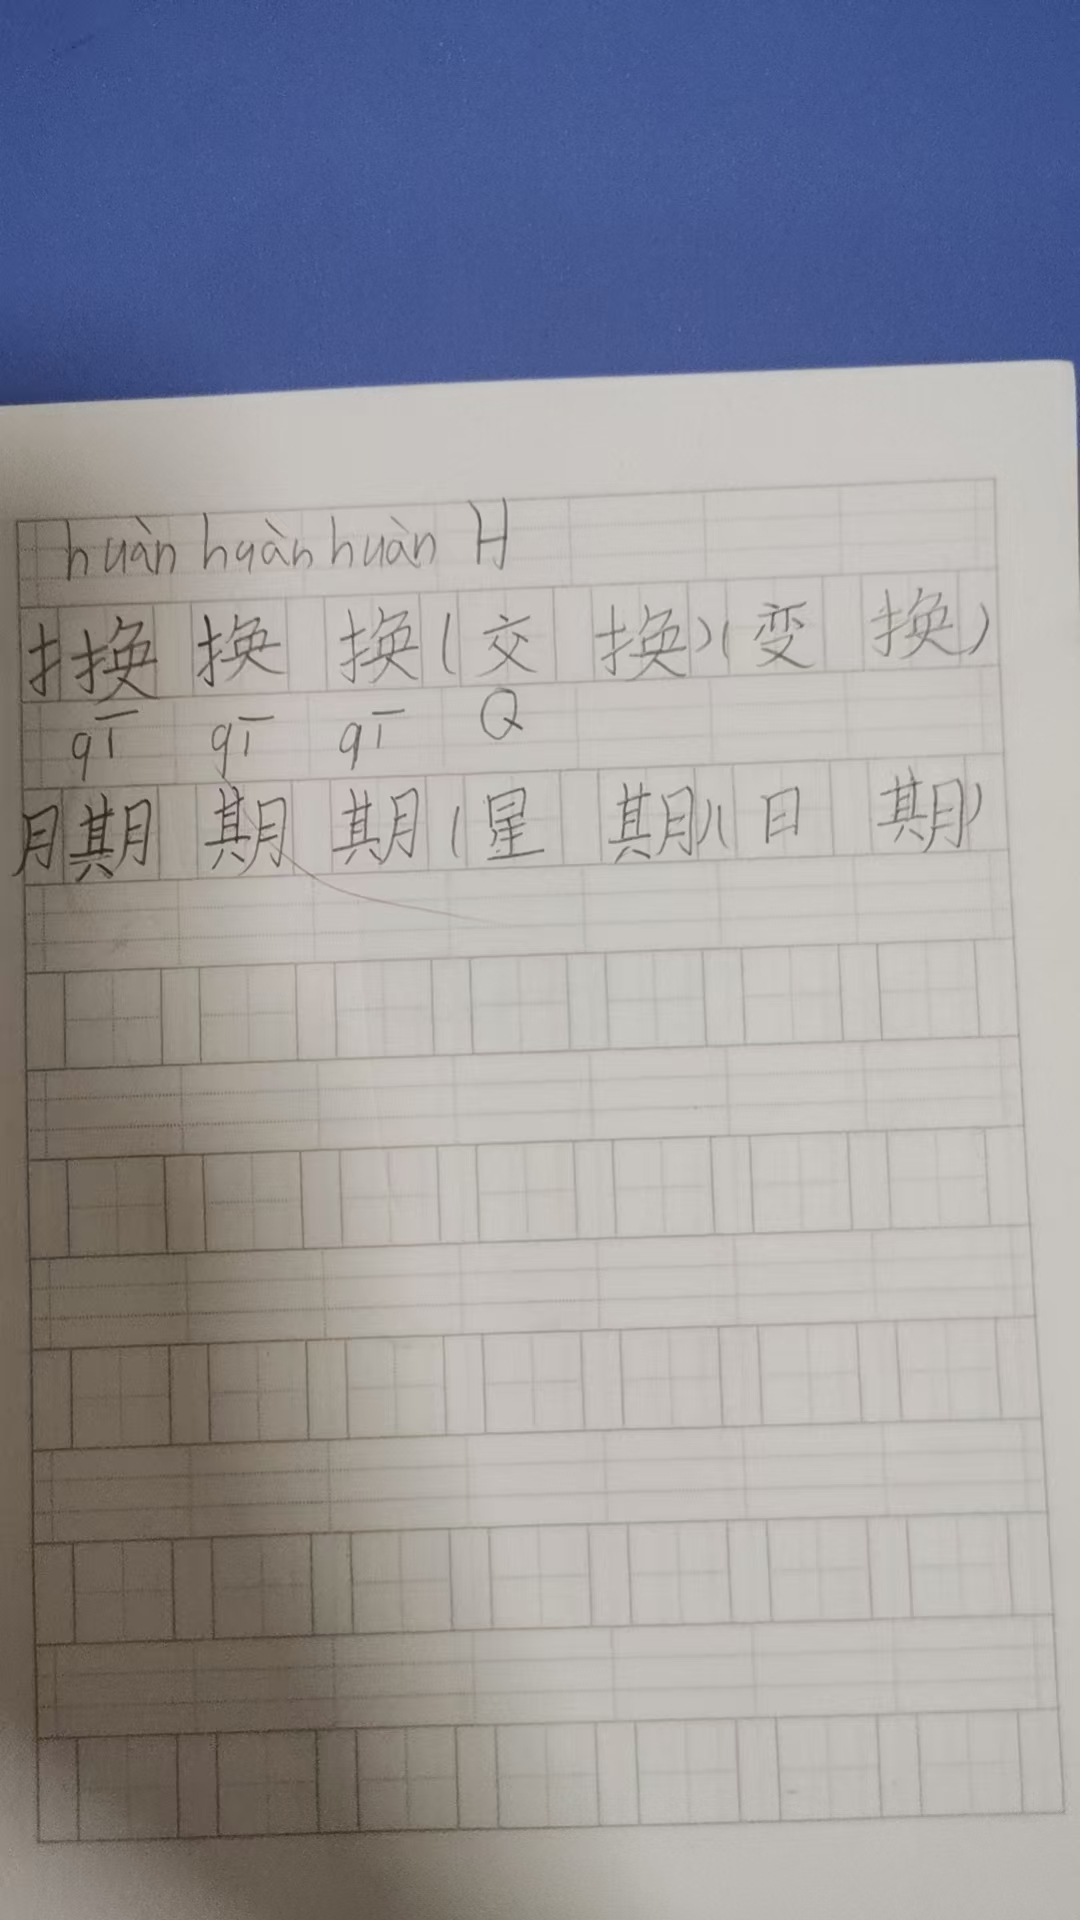 huàn huàn huàn H
扌换 换 换(交 换)(变 换)
qī qī qī Q
月期 期 期(星 期)(日 期)